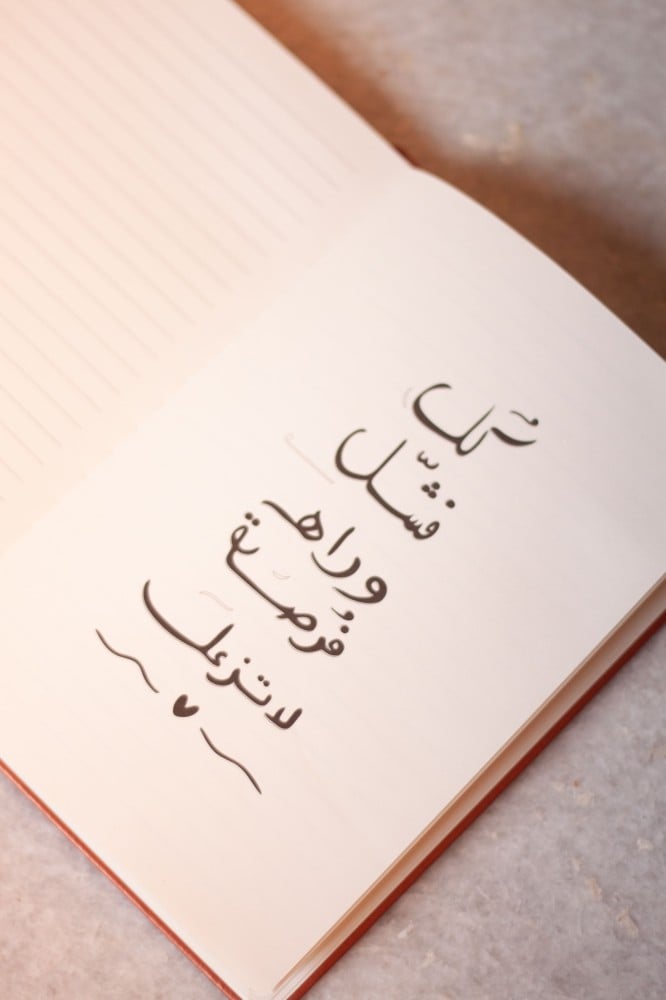 كُل
فشّل
وراها
فُرصة
لاتزعل